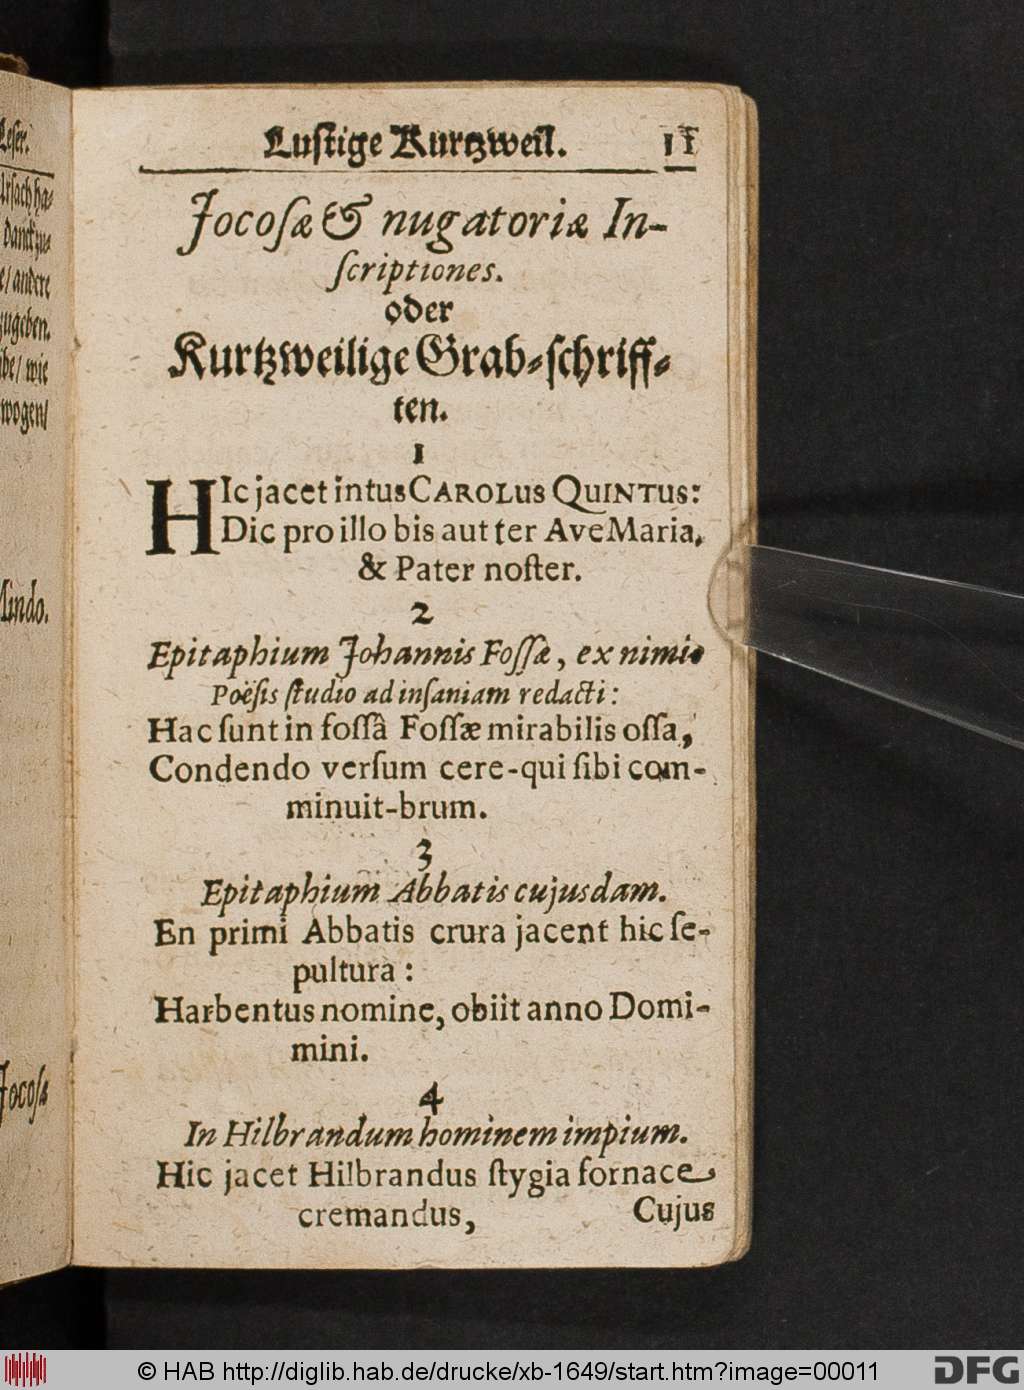 Leser.
Ursach ha-
danck zu-
e/ andere
zugeben.
be/ wie
wogen/
Mindo.
Jocosæ
Lustige Kurtzweil. 11
Jocoſæ & nugatoriæ In-
ſcriptiones.
oder
Kurtzweilige Grab-ſchriff-
ten.
1
HIc jacet intus CAROLUS QUINTUS:
Dic pro illo bis aut ter Ave Maria,
& Pater noſter.
2
Epitaphium Johannis Foſſæ, ex nimio
Poëſis ſtudio ad inſaniam redacti:
Hac ſunt in foſſâ Foſſæ mirabilis oſſa,
Condendo verſum cere-qui ſibi com-
minuit-brum.
3
Epitaphium Abbatis cujusdam.
En primi Abbatis crura jacent hic ſe-
pultura:
Harbentus nomine, obiit anno Domi-
mini.
4
In Hilbrandum hominem impium.
Hic jacet Hilbrandus ſtygia fornace
cremandus,
Cujus
© HAB http://diglib.hab.de/drucke/xb-1649/start.htm?image=00011
DFG